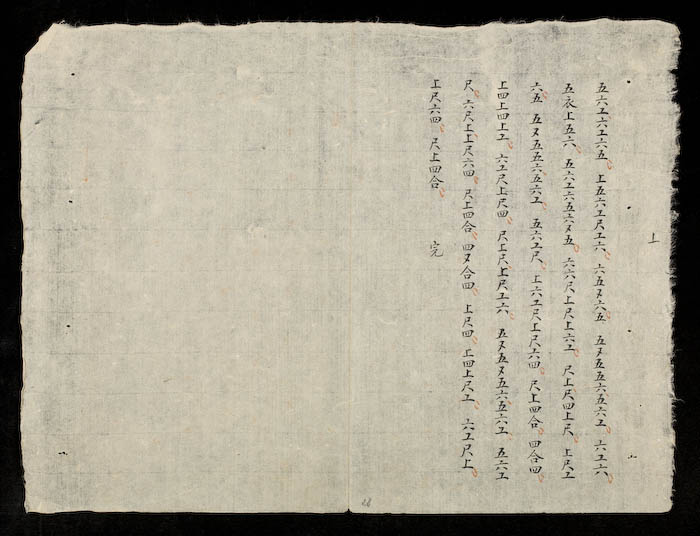 五六工六工六五 上五六工尺工六 六五又六五 五又五五六五六工 六工六
五衣上五六 五六工六五六又五 六六尺上尺上六工 尺上尺四上尺 上尺工
六五 五又五五六五六工 五六工尺 上六工尺上尺六四 尺上四合 四合四
上四上四上工 六工尺上尺四 尺上尺上尺工六 五又五又五六五六工 五六工
尺 六尺上上尺六四 尺上四合 四又合四 上尺四 工四上尺工 六工尺上
上尺六四 尺上四合 完